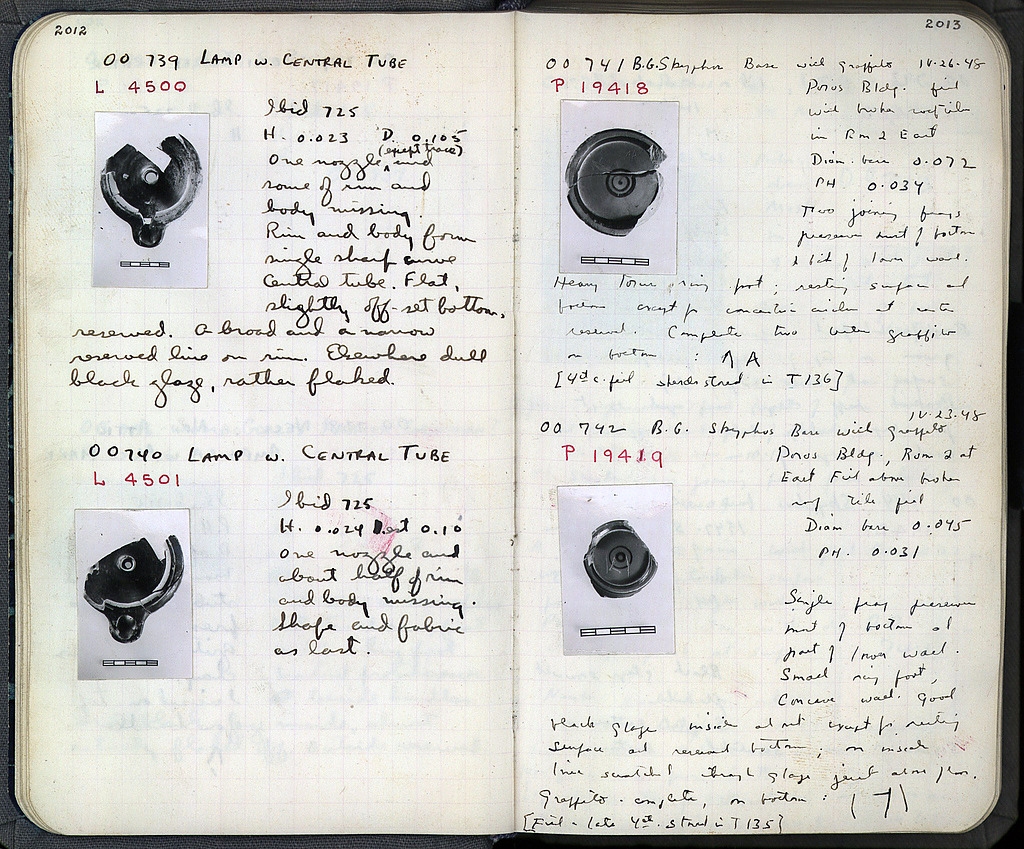 2012
OO 739 LAMP W. CENTRAL TUBE
L 4500
Ibid 725
H. 0.023 D. 0.105
(except trace)
One nozzle, and
some of rim and
body missing.
Rim and body form
single sharp curve
Central tube. Flat,
slightly off-set bottom,
reserved. A broad and a narrow
reserved line on rim. Elsewhere dull
black glaze, rather flaked.
OO 740 LAMP W. CENTRAL TUBE
L 4501
Ibid 725
H. 0.024 D. est 0.10
One nozzle and
about half of rim
and body missing.
Shape and fabric
as last.
2013
OO 741 B.G. Skyphos Base with graffito IV-26-48
P 19418
Poros Bldg. fill
with broken rooftiles
in Rm 2 East
Diam. base 0.072
PH. 0.034
Two joining frags
preserve most of bottom
& bit of lower wall.
Heavy torus ring foot; resting surface and
bottom except for concentric circles at center
reserved. Complete two letter graffito
on bottom : ΛA
[4th c. fill. sherds stored in T 136]
IV-23-48
OO 742 B.G. Skyphos Base with graffito
P 19419
Poros Bldg., Room 2 at
East Fill above broken
roof tile fill
Diam base 0.045
PH. 0.031
Single frag preserves
most of bottom and
part of lower wall.
Small ring foot,
Concave wall. Good
black glaze inside and out except for resting
surface and reserved bottom; on inside
line scratched through glaze just above floor.
Graffito complete, on bottom :
[Fill - late 4th. stored in T 135]